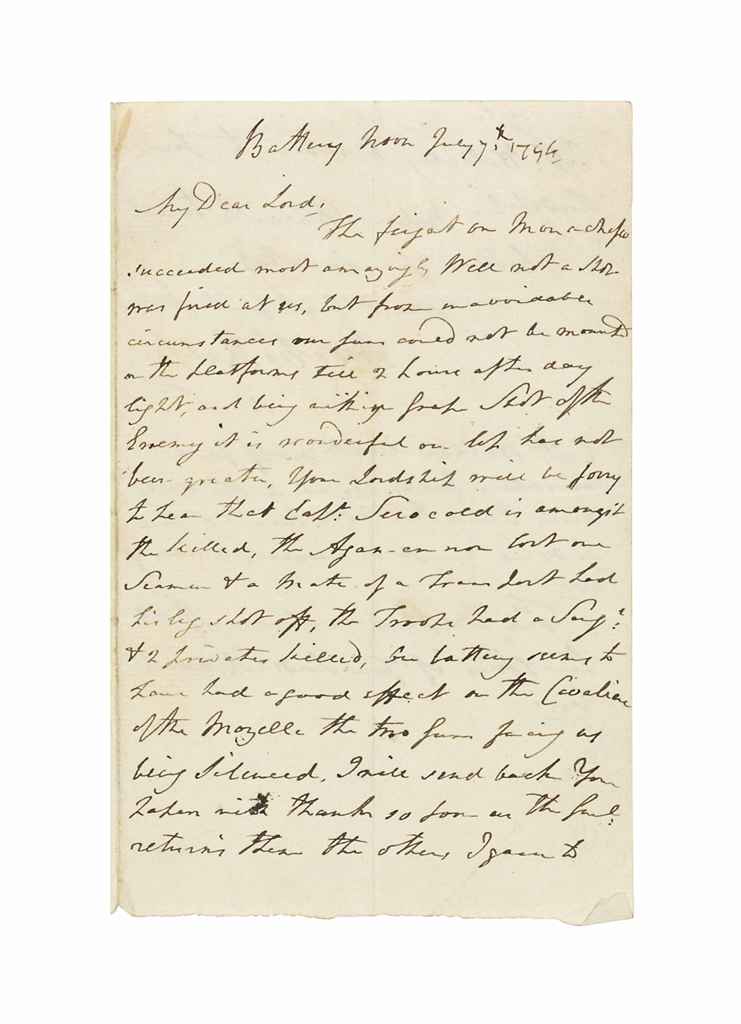 Battery Noon July 7th 1794
My Dear Lord,
The feign't on Monachesco
succeeded most amazingly Well not a Shot
was fired at us, but from unavoidable
circumstances our guns could not be mounted
on the platforms till 2 hours after day
light, and being within grape Shot of the
Enemy it is wonderful our loss has not
been greater, Your Lordship will be sorry
to hear that Capt. Serocold is amongst
the killed, the Agamemnon lost one
Seaman & a Mate of a Transport had
his leg shot off, the Troops had a Serjt.
& 2 privates killed, Our battery seems to
have had a good effect on the Cavalier
of the Mozelle the two guns facing us
being Silenced, I will send back Your
with thanks so soon as the Genl.
returns them the others I gave to